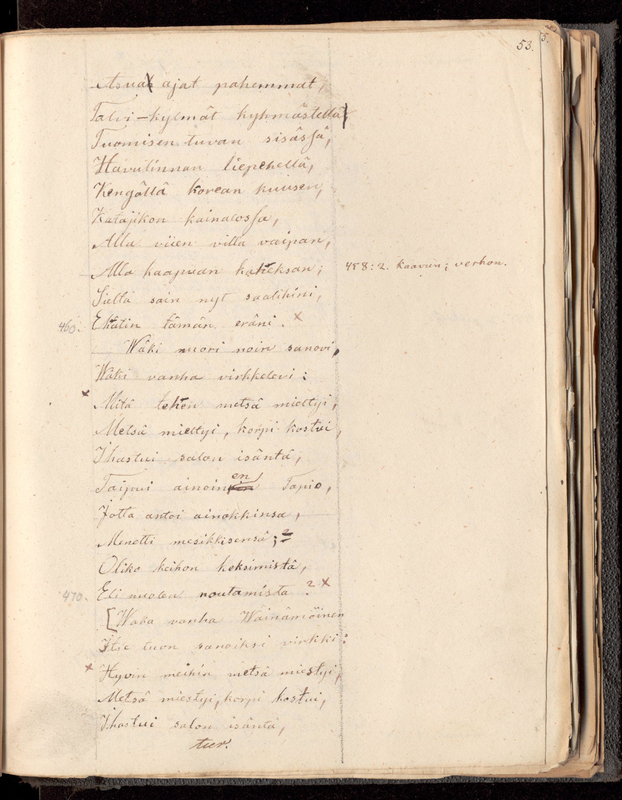 53.
Asua ajat pahemmat,
Talvi-kylmät kyhmästellä
Tuomisen tuvan sisässä,
Havulinnan liepehellä,
Kengällä korean kuusen,
Katajikon kainalossa,
Alla viien villa vaipan,
Alla haapuan kaheksan;
Sieltä sain nyt saalihini,
460. Ehätin tämän eräni. x
Wäki nuori noin sanovi,
Wäki vanha virkkelevi:
x Mitä tehen metsä miettyi,
Metsä miettyi, korpi kostui,
Ihastui salon isäntä,
Taipui ainoinen Tapio,
Jotta antoi ainokkinsa,
Menetti mesikkisensä;
Oliko keihon keksimistä,
470. Eli nuolen noutamista? x
[Waka vanha Wäinämöinen
Itse tuon sanoiksi virkki:
x Hyvin meihin metsä miestyi,
Metsä miestyi, korpi kostui,
Ihastui salon isäntä,
458: 2. kaavun; verhon.